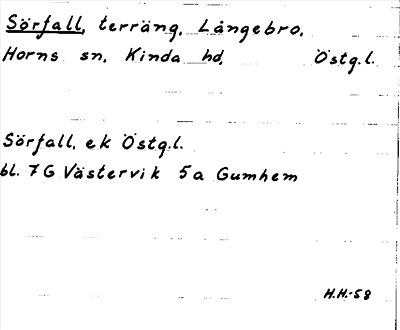 Sörfall, terräng, Långebro,
Horns sn, Kinda hd, Östg.l.
Sörfall, ek Östg.l.
bl. 7G Västervik 5a Gumhem
H.H.-58